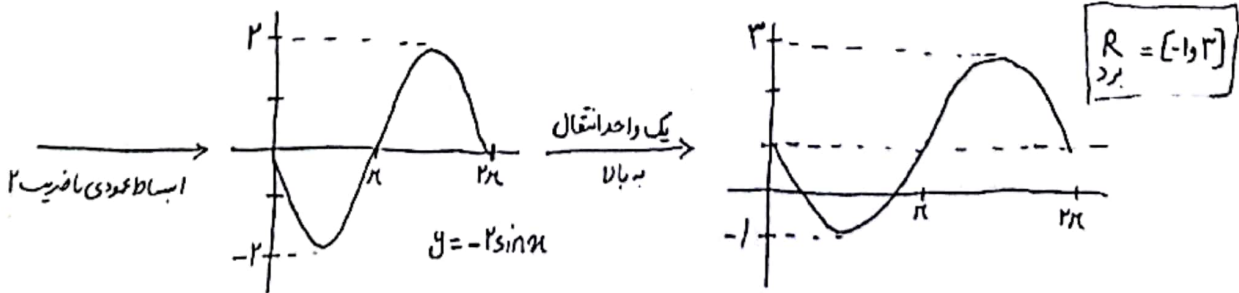 انبساط عمودی با ضریب ۲
۲
-۲
π
۲π
y = -۲sinx
یک واحد انتقال
به بالا
۳
-۱
π
۲π
R = [-۱و۳]
برد